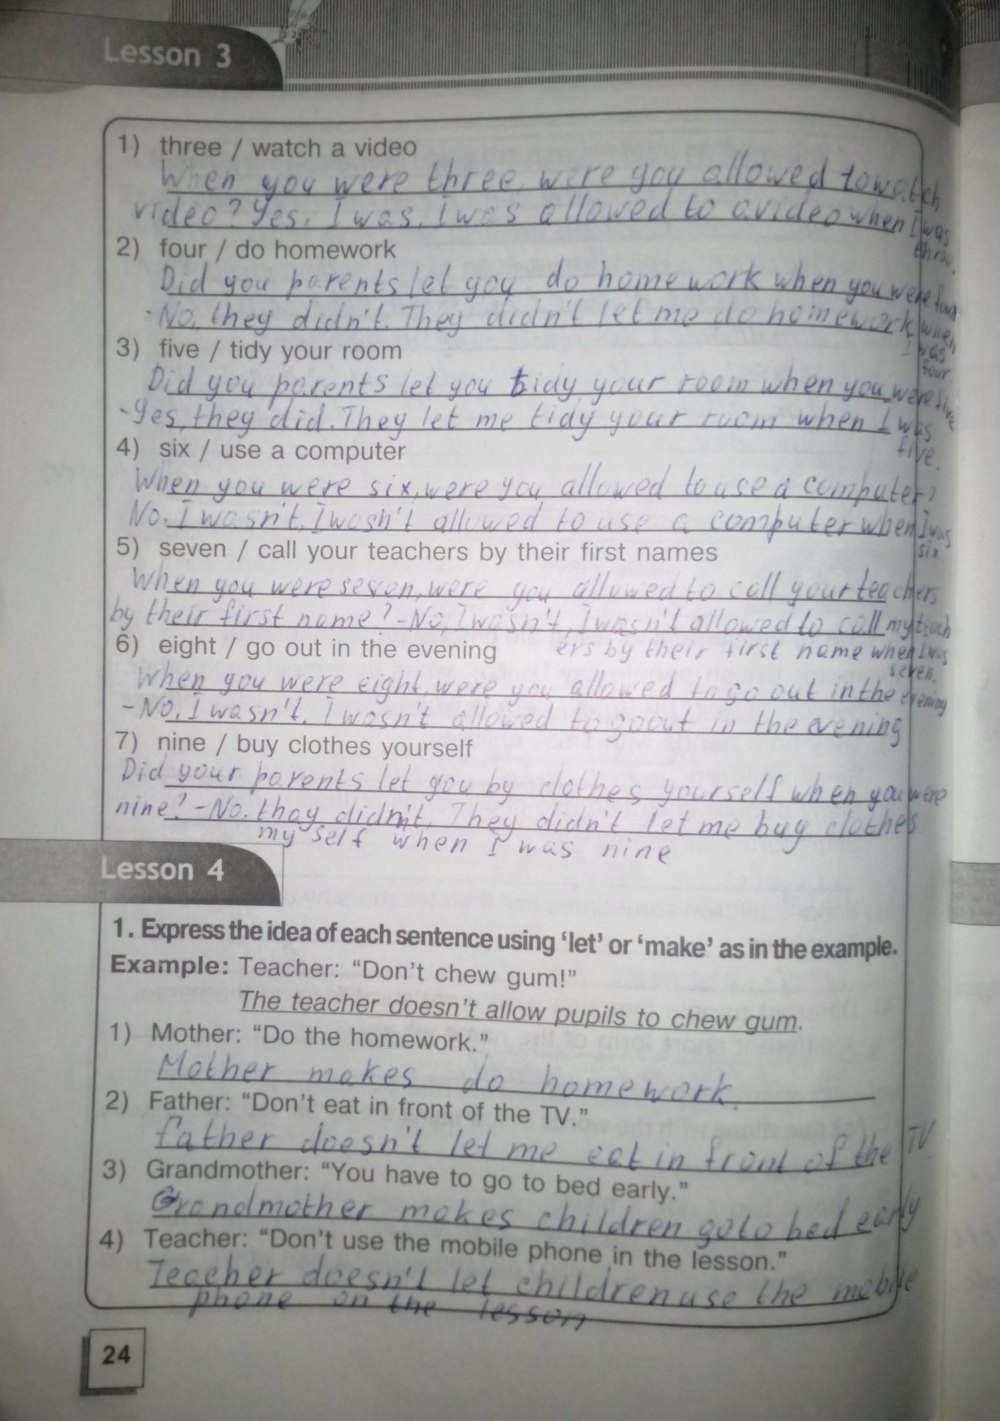 Lesson 3
1) three / watch a video
When you were three, were you allowed to watch
video? Yes, I was, I was allowed to a video when I was
three.
2) four / do homework
Did you parents let you do homework when you were four
-No, they didn't. They didn't let me do homework when
I was
four.
3) five / tidy your room
Did you parents let you tidy your room when you were five
-Yes, they did. They let me tidy your room when I was
five.
4) six / use a computer
When you were six, were you allowed to use a computer?
No, I wasn't, I wasn't allowed to use a computer when I was
six
5) seven / call your teachers by their first names
When you were seven, were you allowed to call your teachers
by their first name? -No, I wasn't, I wasn't allowed to call my teach
6) eight / go out in the evening ers by their first name when I was
seven.
When you were eight, were you allowed to go out in the evening
-No, I wasn't, I wasn't allowed to go out in the evening
7) nine / buy clothes yourself
Did your parents let you by clothes yourself when you were
nine? -No, thay didn't. They didn't let me buy clothes
my self when I was nine
Lesson 4
1. Express the idea of each sentence using 'let' or 'make' as in the example.
Example: Teacher: “Don't chew gum!”
The teacher doesn't allow pupils to chew gum.
1) Mother: “Do the homework.”
Mother makes do homework.
2) Father: “Don't eat in front of the TV.”
father doesn't let me eat in front of the TV.
3) Grandmother: “You have to go to bed early.”
Grandmother makes children go to bed early
4) Teacher: “Don't use the mobile phone in the lesson.”
Teacher doesn't let children use the mobile
phone on the lesson
24